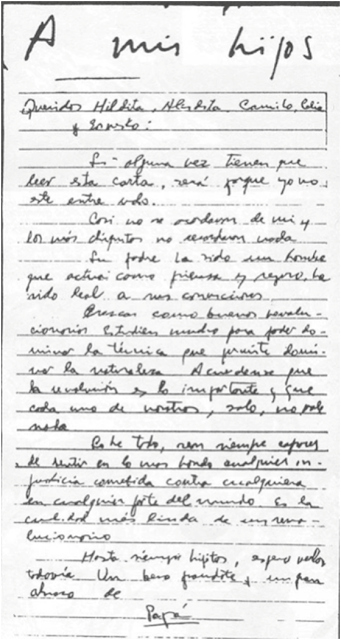 A mis hijos
Queridos Hildita, Aleidita, Camilo, Celia
y Ernesto:
Si alguna vez tienen que
leer esta carta, será porque yo no
esté entre uds.
Casi no se acordaran de mi y
los más chiquitos no recordaran nada
Su padre ha sido un hombre
que actúa como piensa y, seguro, ha
sido leal a sus convicciones.
Crezcan como buenos revolu-
cionarios. Estudien mucho para poder do-
minar la técnica que permite domi-
nar la naturaleza. Acuerdense que
la revolución es lo importante y que
cada uno de nosotros, solo, no vale
nada
Sobre todo, sean siempre capaces
de sentir en lo mas hondo cualquier in-
justicia cometida contra cualquiera
en cualquier parte del mundo. Es la
cualidad más linda de un revo-
lucionario
Hasta siempre hijitos, espero verlos
todavía. Un beso grandote y un gran
abrazo de
Papá